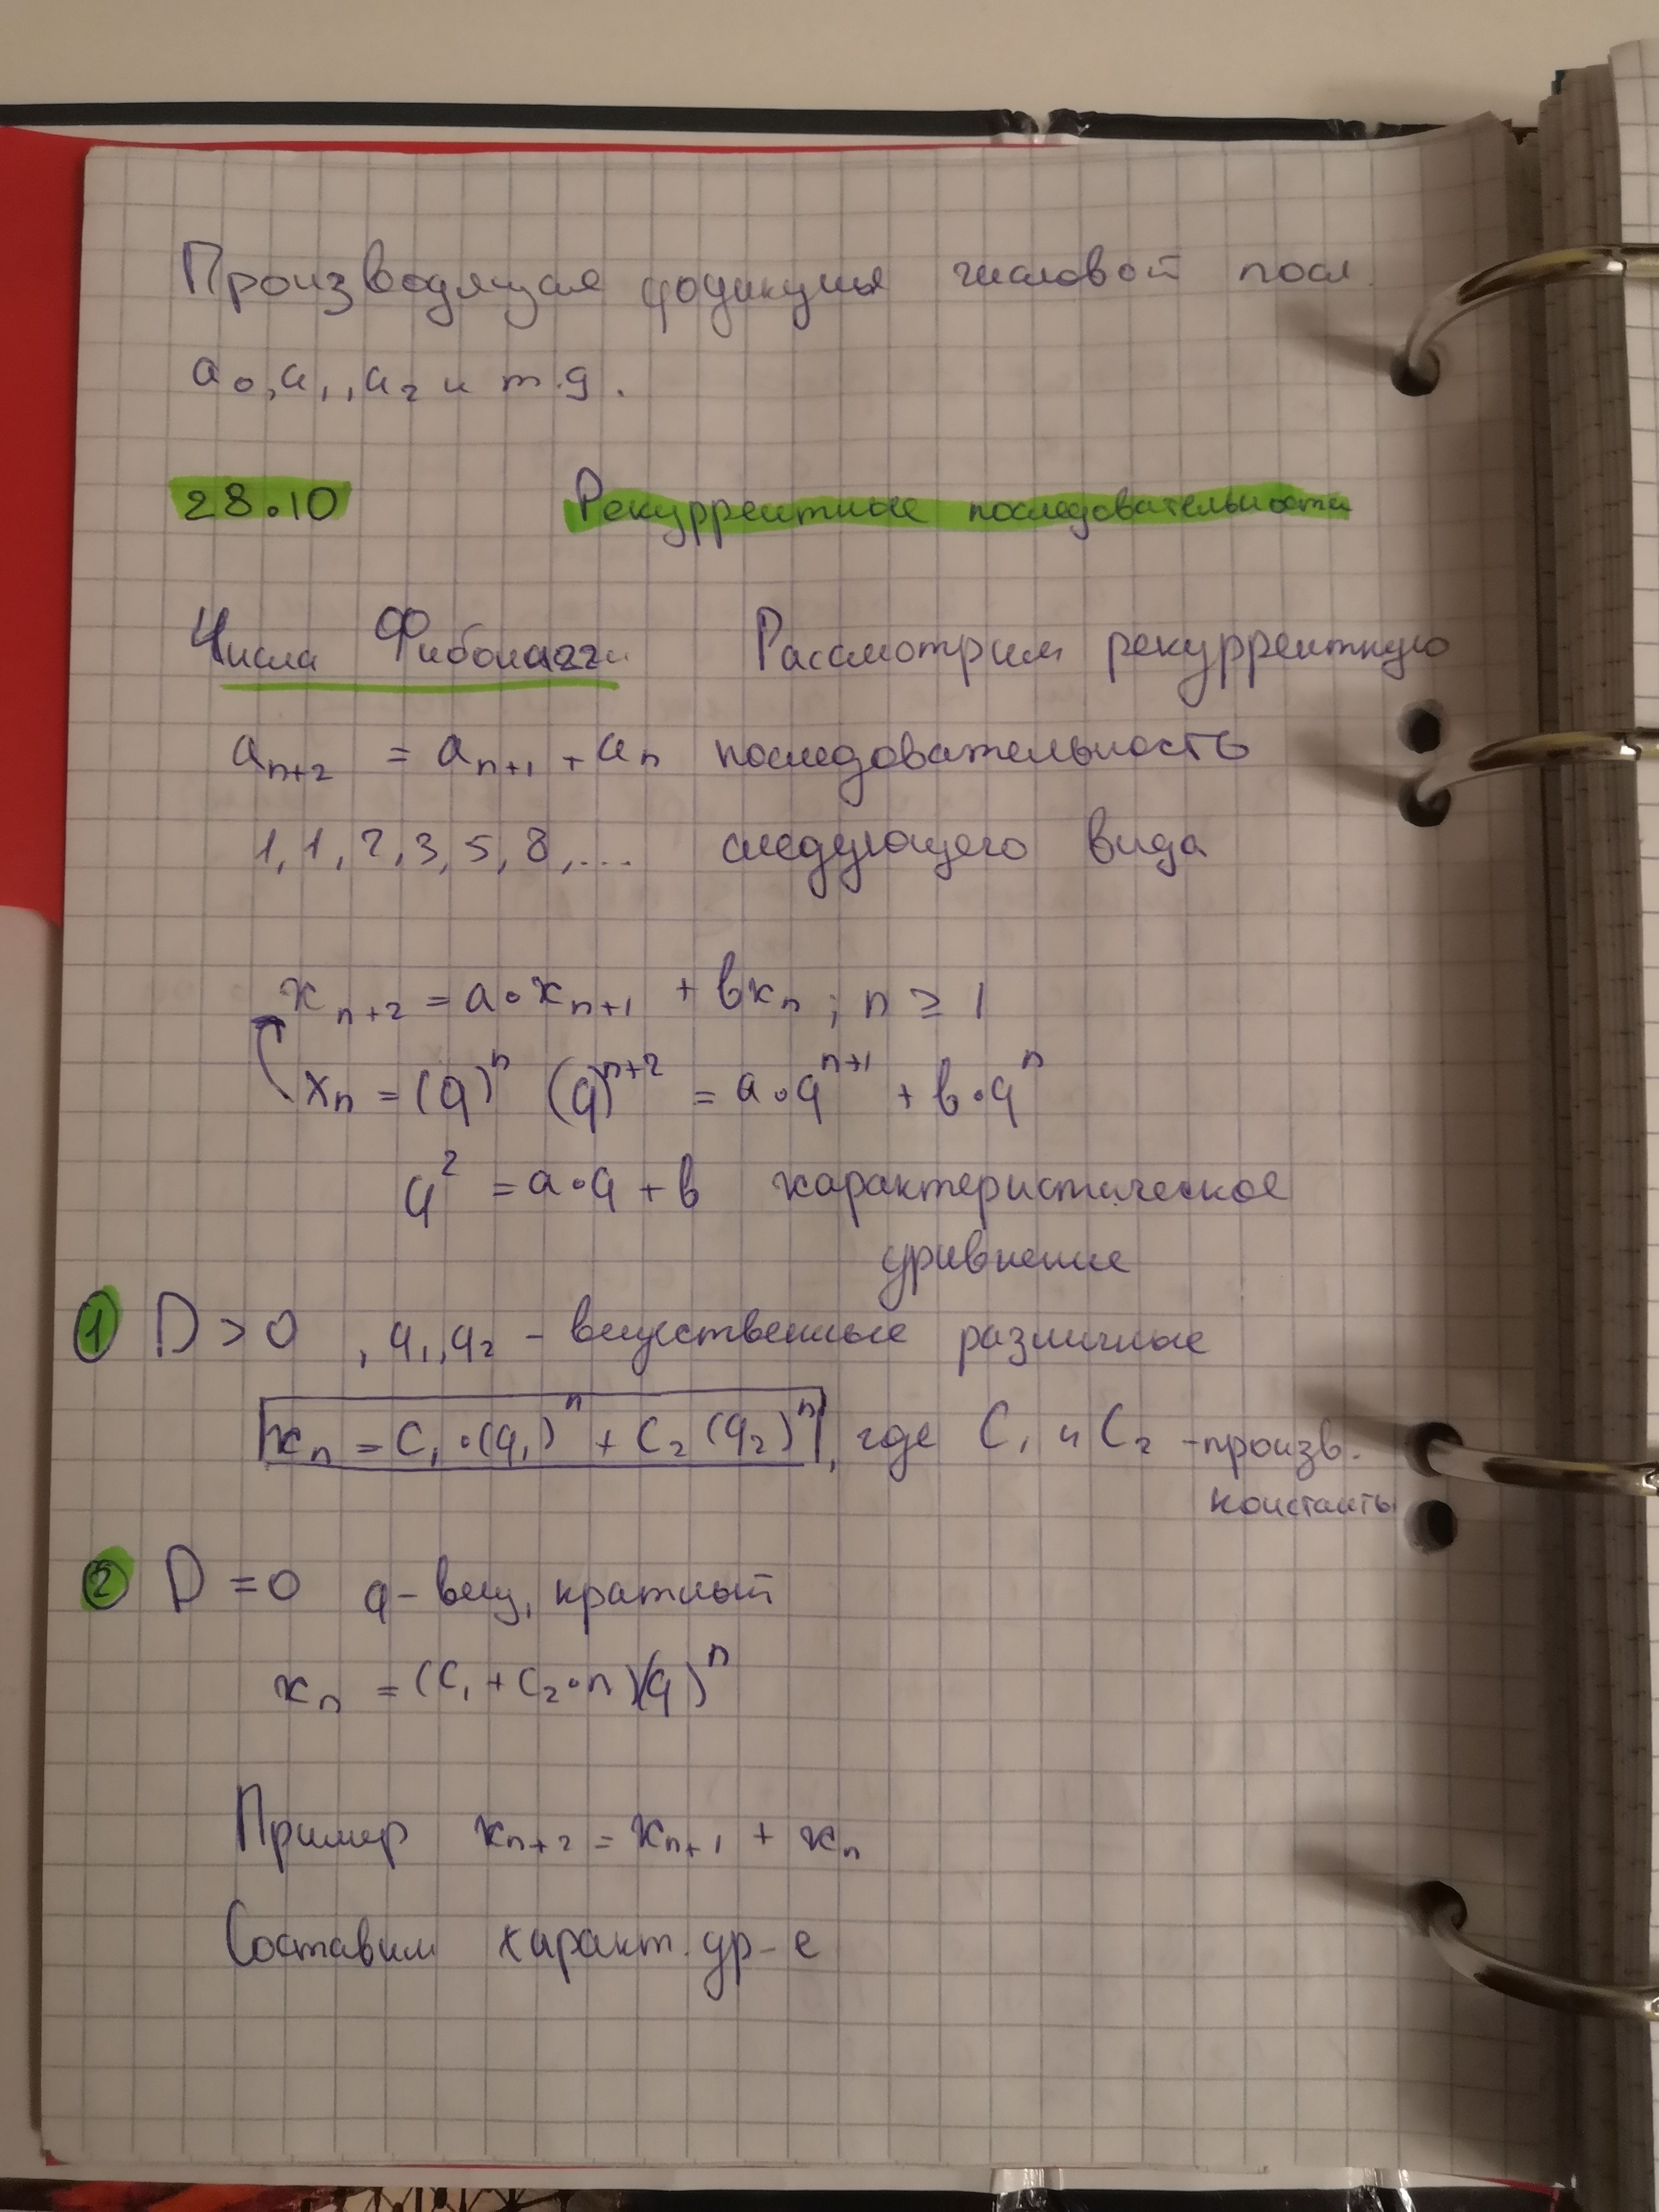 Производящая функция числовой посл.
a₀, a₁, a₂ и т.д.
28.10 Рекуррентные последовательности
Числа Фибоначчи Рассмотрим рекуррентную
aₙ₊₂ = aₙ₊₁ + aₙ последовательность
1, 1, 2, 3, 5, 8, ... следующего вида
xₙ₊₂ = a·xₙ₊₁ + bxₙ ; n ≥ 1
xₙ = (q)ⁿ (q)ⁿ⁺² = a·qⁿ⁺¹ + b·qⁿ
q² = a·q + b характеристическое
уравнение
① D > 0, q₁, q₂ - вещественные различные
xₙ = C₁·(q₁)ⁿ + C₂(q₂)ⁿ, где C₁ и C₂ - произв.
константы
② D = 0 q - вещ, кратный
xₙ = (C₁ + C₂·n)(q)ⁿ
Пример xₙ₊₂ = xₙ₊₁ + xₙ
Составим характ. ур-е